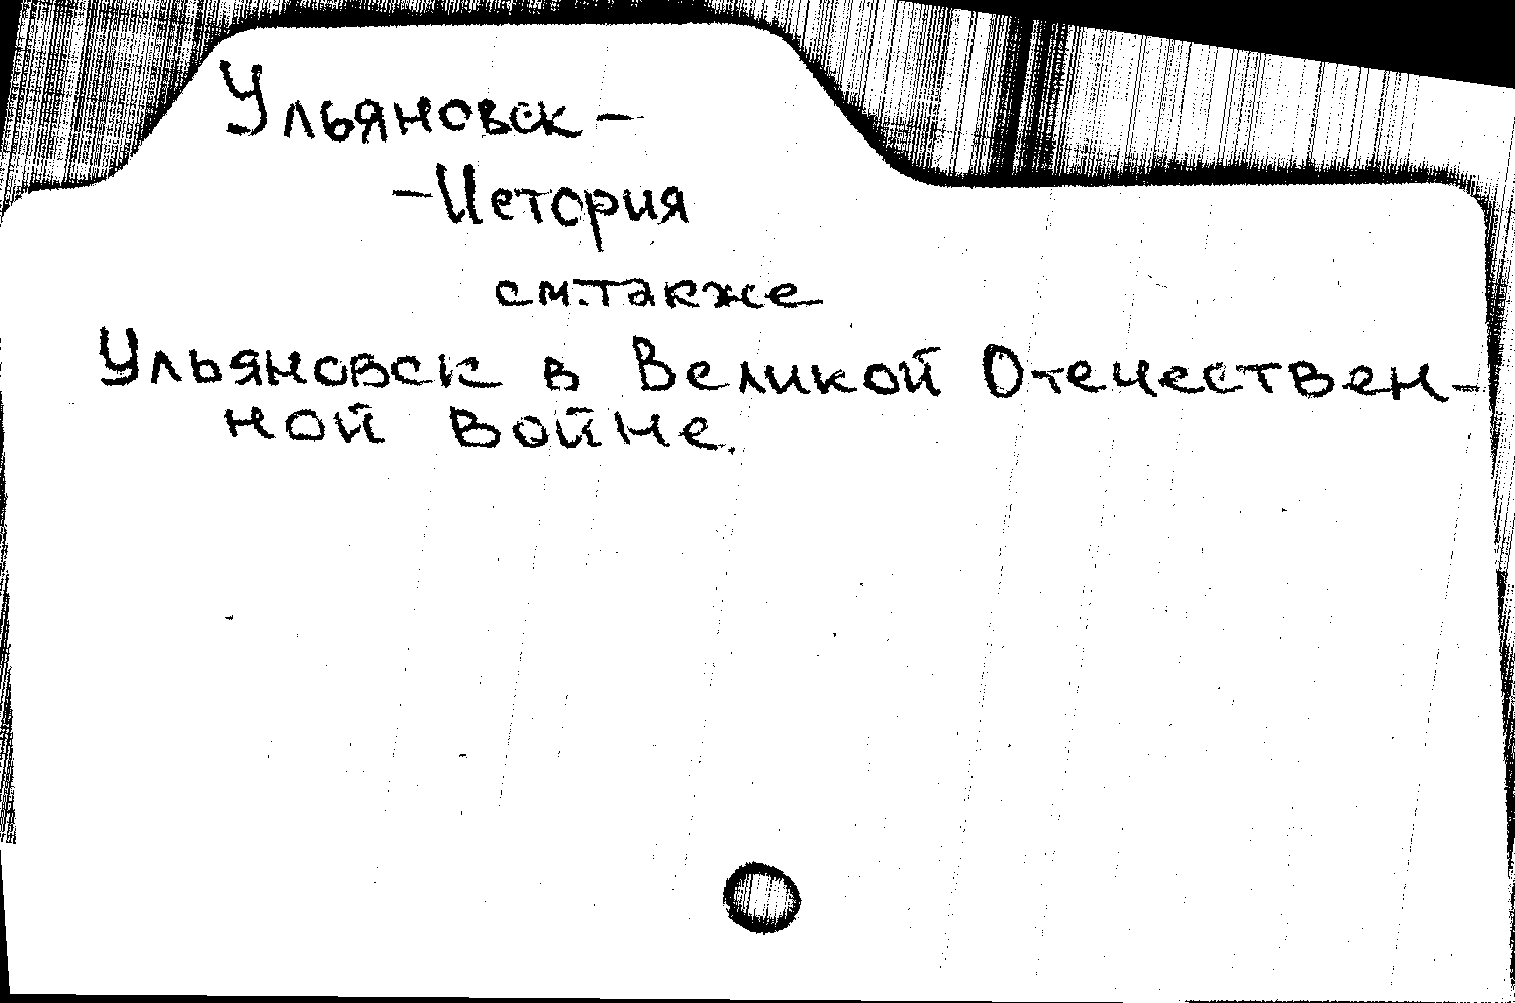 Ульяновск -
- История
см. также
Ульяновск в Великой Отечествен-
ной войне.